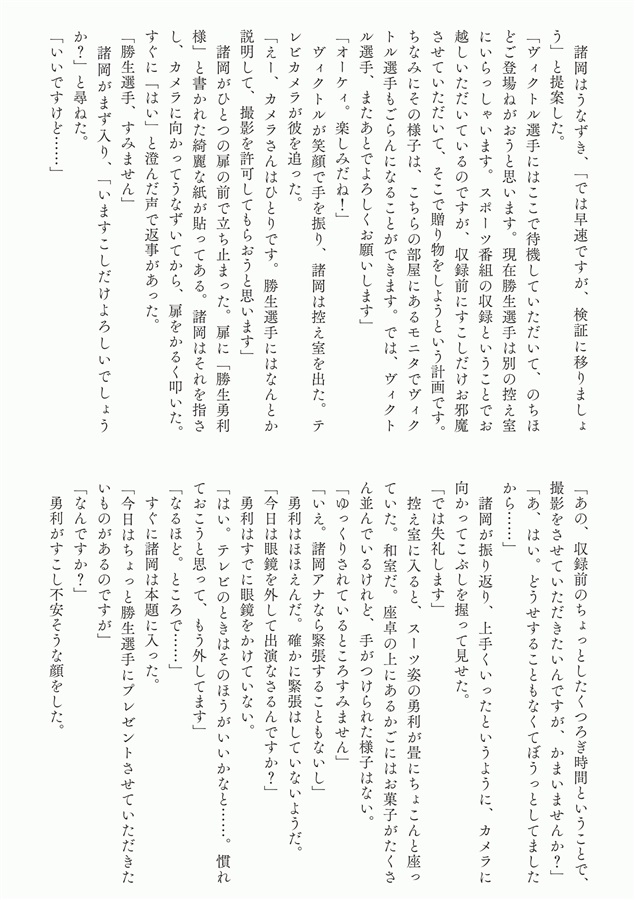 諸岡はうなずき、「では早速ですが、検証に移りましょ
う」と提案した。
「ヴィクトル選手にはここで待機していただいて、のちほ
どご登場ねがおうと思います。現在勝生選手は別の控え室
にいらっしゃいます。スポーツ番組の収録ということでお
越しいただいているのですが、収録前にすこしだけお邪魔
させていただいて、そこで贈り物をしようという計画です。
ちなみにその様子は、こちらの部屋にあるモニタでヴィク
トル選手もごらんになることができます。では、ヴィクト
ル選手、またあとでよろしくお願いします」
「オーケィ。楽しみだね！」
ヴィクトルが笑顔で手を振り、諸岡は控え室を出た。テ
レビカメラが彼を追った。
「えー、カメラさんはひとりです。勝生選手にはなんとか
説明して、撮影を許可してもらおうと思います」
諸岡がひとつの扉の前で立ち止まった。扉に「勝生勇利
様」と書かれた綺麗な紙が貼ってある。諸岡はそれを指さ
し、カメラに向かってうなずいてから、扉をかるく叩いた。
すぐに「はい」と澄んだ声で返事があった。
「勝生選手、すみません」
諸岡がまず入り、「いますこしだけよろしいでしょう
か？」と尋ねた。
「いいですけど……」
「あの、収録前のちょっとしたくつろぎ時間ということで、
撮影をさせていただきたいんですが、かまいませんか？」
「あ、はい。どうせすることもなくてぼうっとしてました
から……」
諸岡が振り返り、上手くいったというように、カメラに
向かってこぶしを握って見せた。
「では失礼します」
控え室に入ると、スーツ姿の勇利が畳にちょこんと座っ
ていた。和室だ。座卓の上にあるかごにはお菓子がたくさ
ん並んでいるけれど、手がつけられた様子はない。
「ゆっくりされているところすみません」
「いえ。諸岡アナなら緊張することもないし」
勇利はほほえんだ。確かに緊張はしていないようだ。
「今日は眼鏡を外して出演なさるんですか？」
勇利はすでに眼鏡をかけていない。
「はい。テレビのときはそのほうがいいかなと……。慣れ
ておこうと思って、もう外してます」
「なるほど。ところで……」
すぐに諸岡は本題に入った。
「今日はちょっと勝生選手にプレゼントさせていただきた
いものがあるのですが」
「なんですか？」
勇利がすこし不安そうな顔をした。